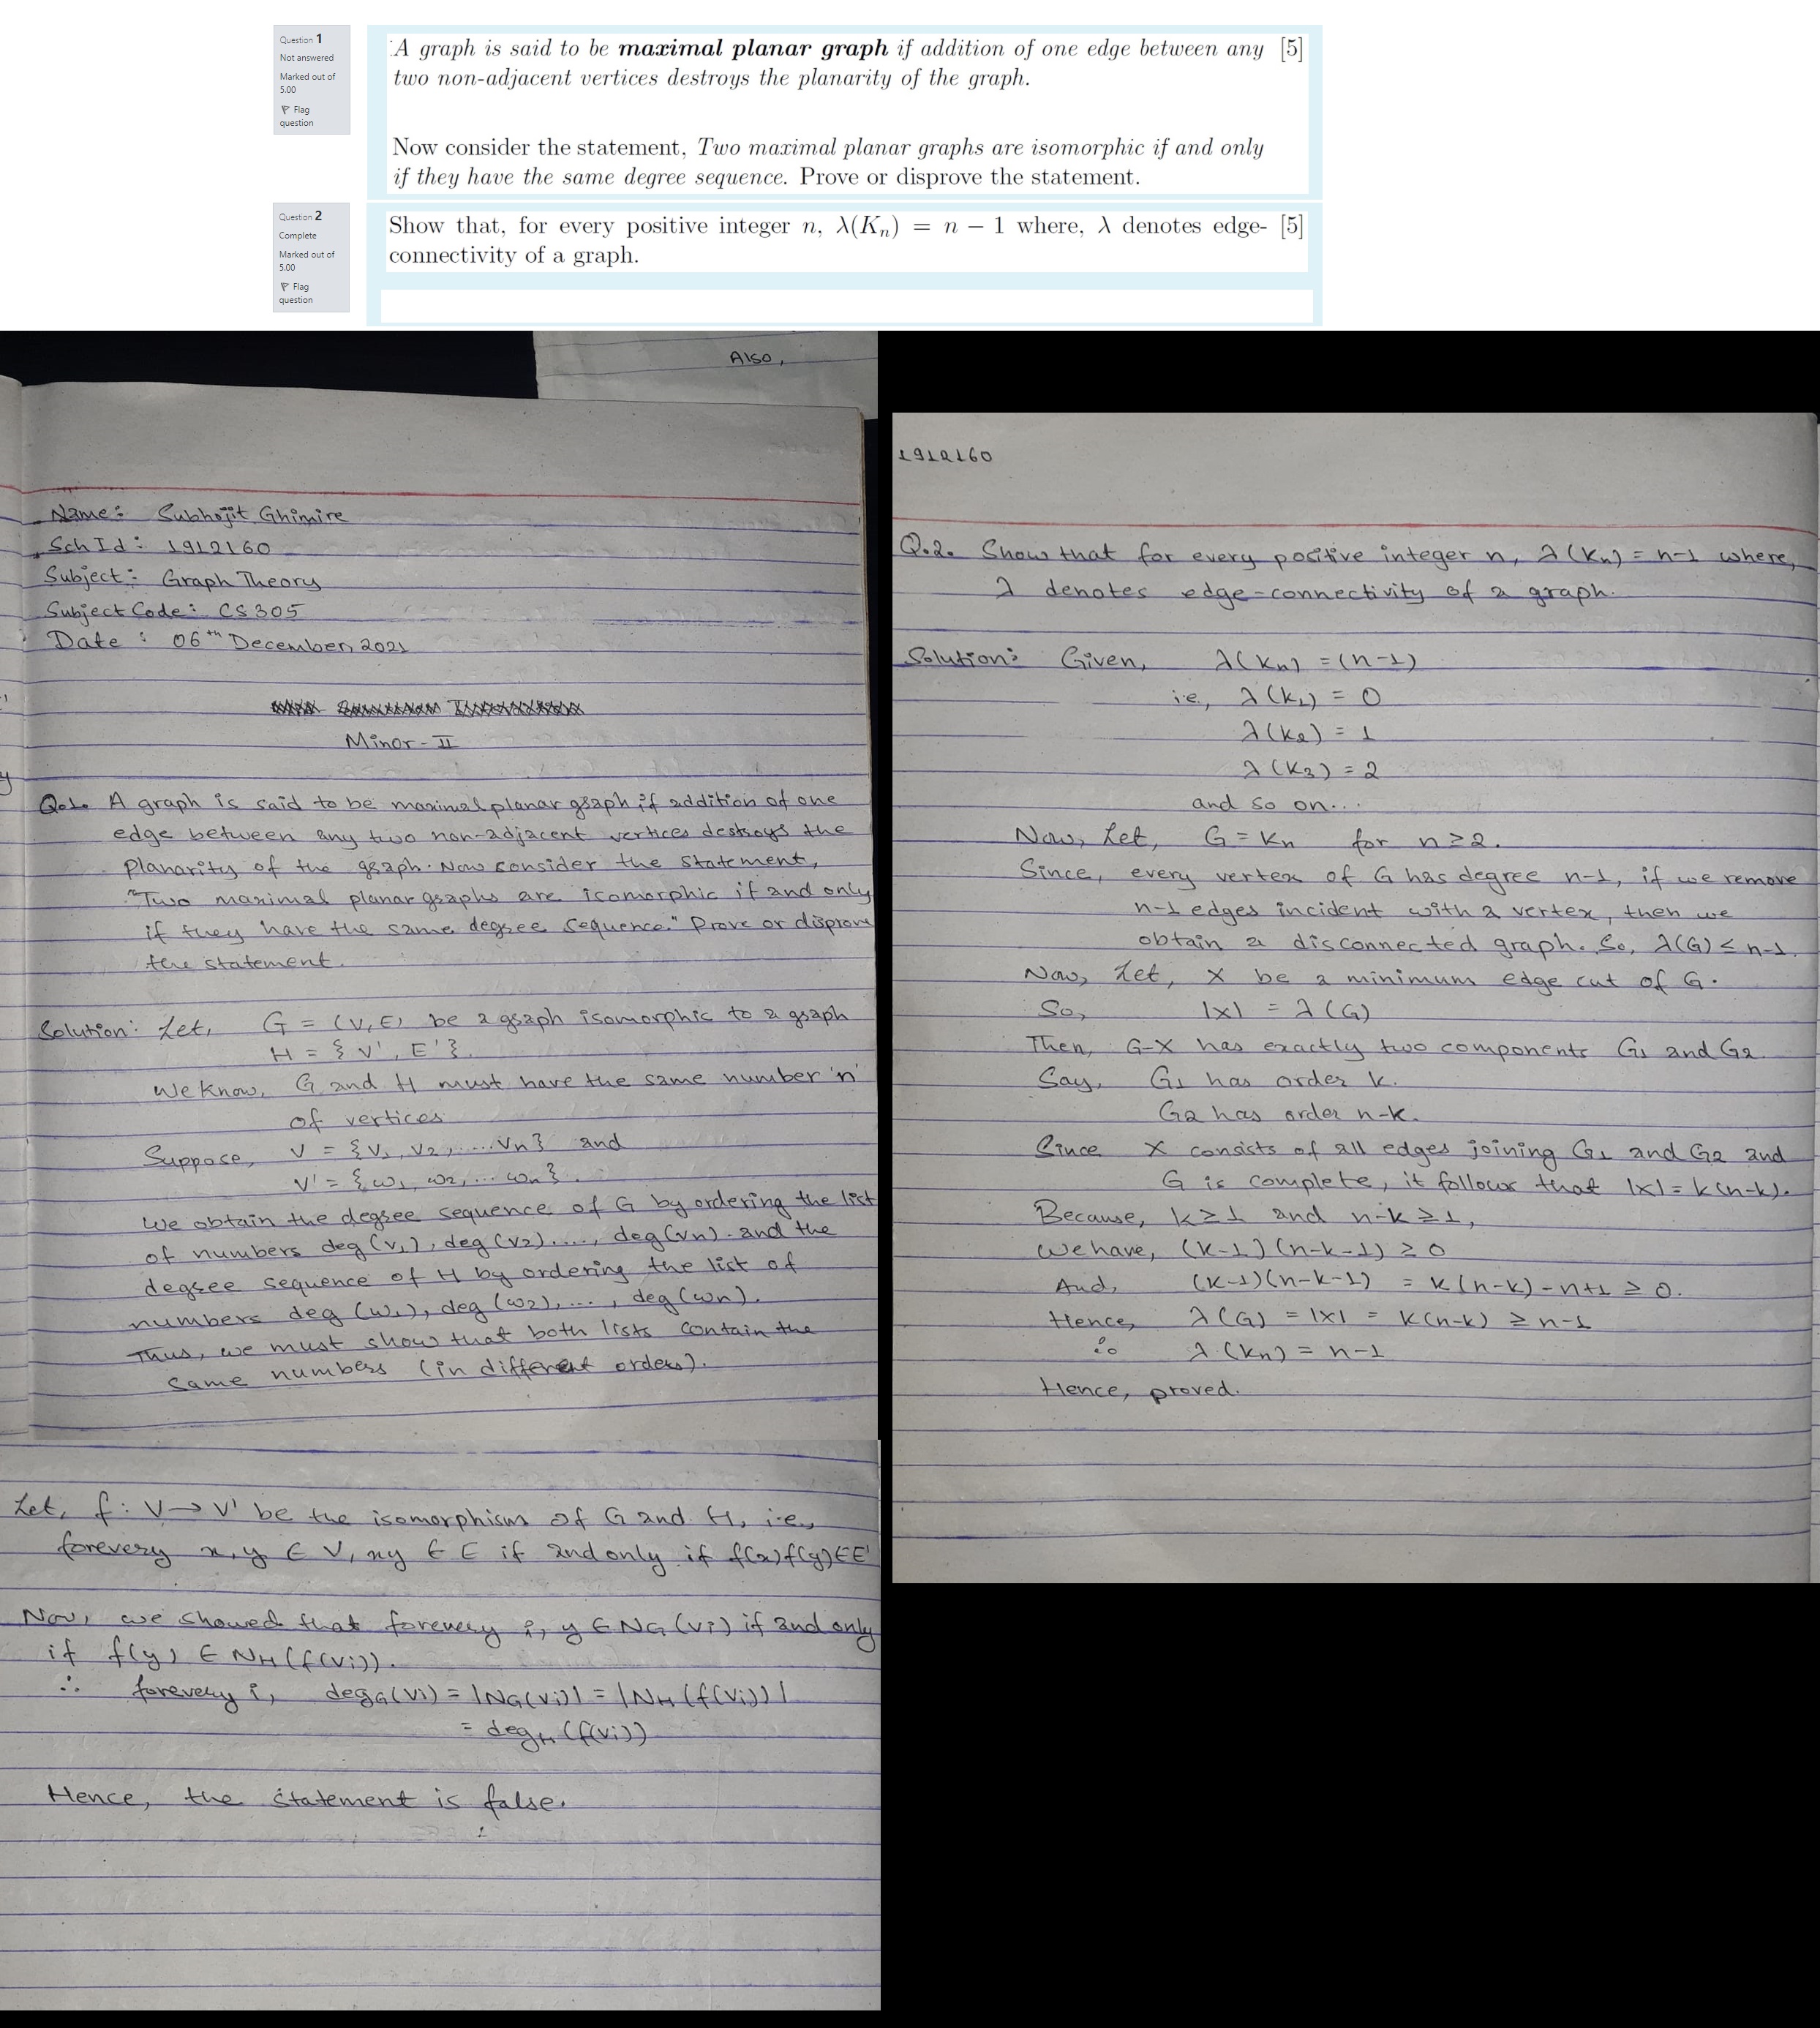 Question 1
Not answered
Marked out of
5.00
Flag
question
A graph is said to be maximal planar graph if addition of one edge between any [5]
two non-adjacent vertices destroys the planarity of the graph.
Now consider the statement, Two maximal planar graphs are isomorphic if and only
if they have the same degree sequence. Prove or disprove the statement.
Question 2
Complete
Marked out of
5.00
Flag
question
Show that, for every positive integer n, λ(Kₙ) = n − 1 where, λ denotes edge- [5]
connectivity of a graph.
Also,
Name: Subhojit Ghimire
Sch Id: 1912160
Subject: Graph Theory
Subject Code: CS305
Date : 06th December, 2021
Minor-II
Q.1. A graph is said to be maximal planar graph if addition of one
edge between any two non-adjacent vertices destroys the
planarity of the graph. Now consider the statement,
"Two maximal planar graphs are isomorphic if and only
if they have the same degree sequence." Prove or disprove
the statement.
Solution: Let, G = (V, E) be a graph isomorphic to a graph
H = { V', E' }.
We know, G and H must have the same number 'n'
of vertices
Suppose, V = {V1, V2, ....Vn} and
V' = {ω1, ω2, ... ωn}.
We obtain the degree sequence of G by ordering the list
of numbers deg (V1), deg (V2)...., deg (Vn). and the
degree sequence of H by ordering the list of
numbers deg (ω1), deg (ω2),..., deg (ωn).
Thus, we must show that both lists contain the
same numbers (in different orders).
Let, f: V→V' be the isomorphism of G and H, i.e.,
forevery x,y ∈ V, xy ∈ E if and only if f(x)f(y)∈E'
Now, we showed that forevery i, y ∈ NG (vi) if and only
if f(y) ∈ NH (f(vi)).
∴ forevery i, degG(vi) = |NG(vi)| = |NH (f(vi))|
= degH (f(vi))
Hence, the statement is false.
1912160
Q.2. Show that for every positive integer n, λ(Kn) = n-1 where,
λ denotes edge-connectivity of a graph.
Solution: Given, λ(Kn) = (n-1)
i.e., λ(K1) = 0
λ(K2) = 1
λ(K3) = 2
and so on...
Now, Let, G = Kn for n ≥ 2.
Since, every vertex of G has degree n-1, if we remove
n-1 edges incident with a vertex, then we
obtain a disconnected graph. So, λ(G) ≤ n-1.
Now, Let, X be a minimum edge cut of G.
So, |X| = λ(G)
Then, G-X has exactly two components G1 and G2.
Say, G1 has order k.
G2 has order n-k.
Since X consists of all edges joining G1 and G2 and
G is complete, it follows that |X| = k(n-k).
Because, k ≥ 1 and n-k ≥ 1,
We have, (k-1)(n-k-1) ≥ 0
And, (k-1)(n-k-1) = k(n-k) - n+1 ≥ 0.
Hence, λ(G) = |X| = k(n-k) ≥ n-1
∴ λ(Kn) = n-1
Hence, proved.